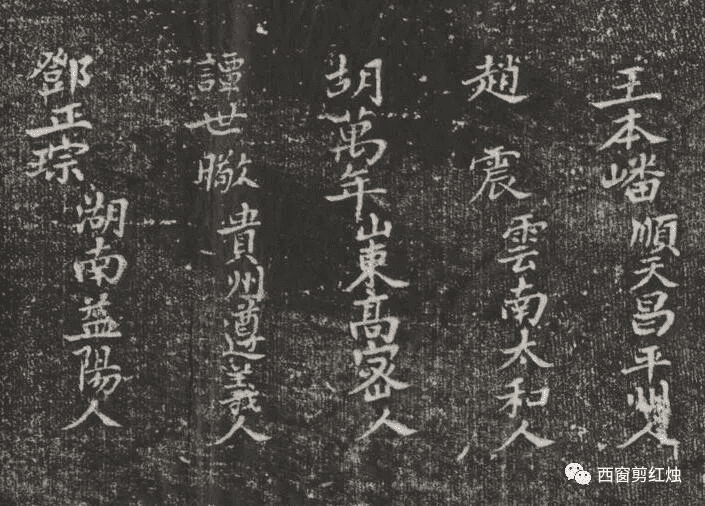 王本嶓順天昌平州人
趙震雲南太和人
胡萬年山東高密人
譚世㬠貴州遵義人
鄧正琮湖南益陽人
西窗剪红烛